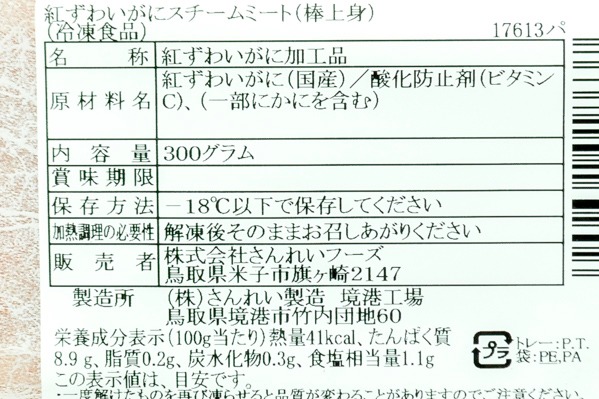 紅ずわいがにスチームミート(棒上身)
(冷凍食品) 17613パ
名称 紅ずわいがに加工品
原材料名 紅ずわいがに(国産)／酸化防止剤(ビタミン
C)、(一部にかにを含む)
内容量 300グラム
賞味期限
保存方法 －18℃以下で保存してください
加熱調理の必要性 解凍後そのままお召しあがりください
販売者 株式会社さんれいフーズ
鳥取県米子市旗ヶ崎2147
製造所 (株)さんれい製造 境港工場
鳥取県境港市竹内団地60
栄養成分表示(100g当たり)熱量41kcal、たんぱく質
8.9g、脂質0.2g、炭水化物0.3g、食塩相当量1.1g
この表示値は、目安です。
プラ トレー:P.T.
袋:PE,PA
・一度解けたものを再び凍らせると品質が変わることがありますのでご注意ください。